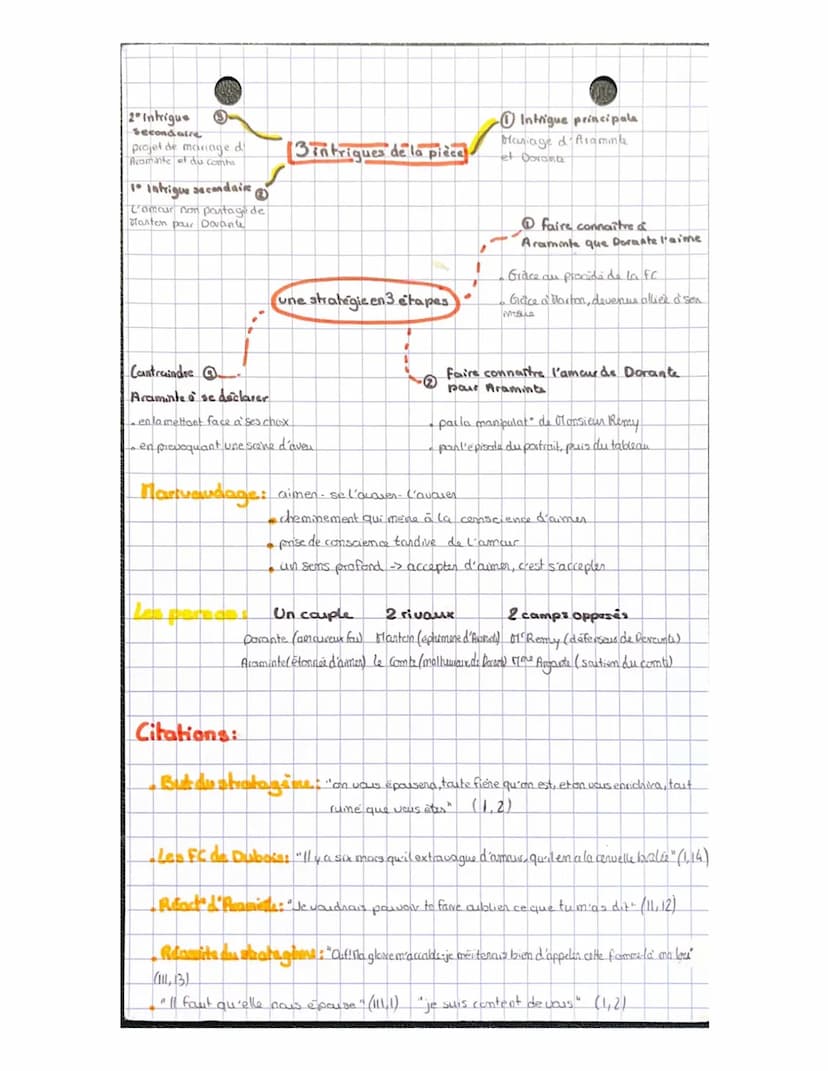 2° Intrigue ③
secondaire
projet de mariage d'
Araminte et du comte
1° Intrigue secondaire ②
L'amour non partagé de
Marton pour Dorante
3 intrigues de la pièce
① Intrigue principale
Mariage d'Araminte
et Dorante
① faire connaître à
Araminte que Dorante l'aime
. Grâce au procédé de la FC
. Grâce à Marton, devenue alliée à son
une stratégie en 3 étapes
Contraindre
Araminte à se déclarer
. en la mettant face à ses choix
. en provoquant une scène d'aveu
② Faire connaître l'amour de Dorante
pour Araminte
. par la manipulat° de Monsieur Remy
. par l'épisode du portrait, puis du tableau
Marivaudage: aimer - se l'avouer - l'avouer
. cheminement qui mène à la conscience d'aimer
. prise de conscience tardive de l'amour
. un sens profond -> accepter d'aimer, c'est s'accepter
Les persos: Un couple 2 rivaux 2 camps opposés
Dorante (amoureux fou) Marton Mr Remy (défenseur de Dorante)
Araminte (étonnée d'aimer) le Comte Mme Argante (soutien du comte)
Citations:
. But du stratagème: "on vous épousera, toute fière qu'on est, et on vous enrichira, tout
ruiné que vous êtes" (I,2)
. Les FC de Dubois: "Il y a six mois qu'il extravague d'amour, qu'il en a la cervelle brûlée" (I,14)
. Réact° d'Araminte: "Je voudrais pouvoir te faire oublier ce que tu m'as dit" (II,12)
. Réussite du stratagème: "Ouf! Ma gloire m'accable: je mériterais bien d'appeler cette femme-là ma bru"
(III,13)
. "Il faut qu'elle nous épouse" (III,1) "je suis content de vous" (I,2)